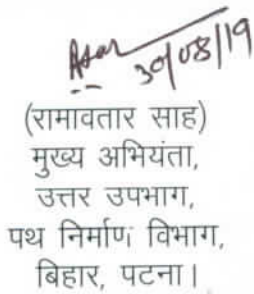 30/08/19
(रामावतार साह)
मुख्य अभियंता,
उत्तर उपभाग,
पथ निर्माण विभाग,
बिहार, पटना।